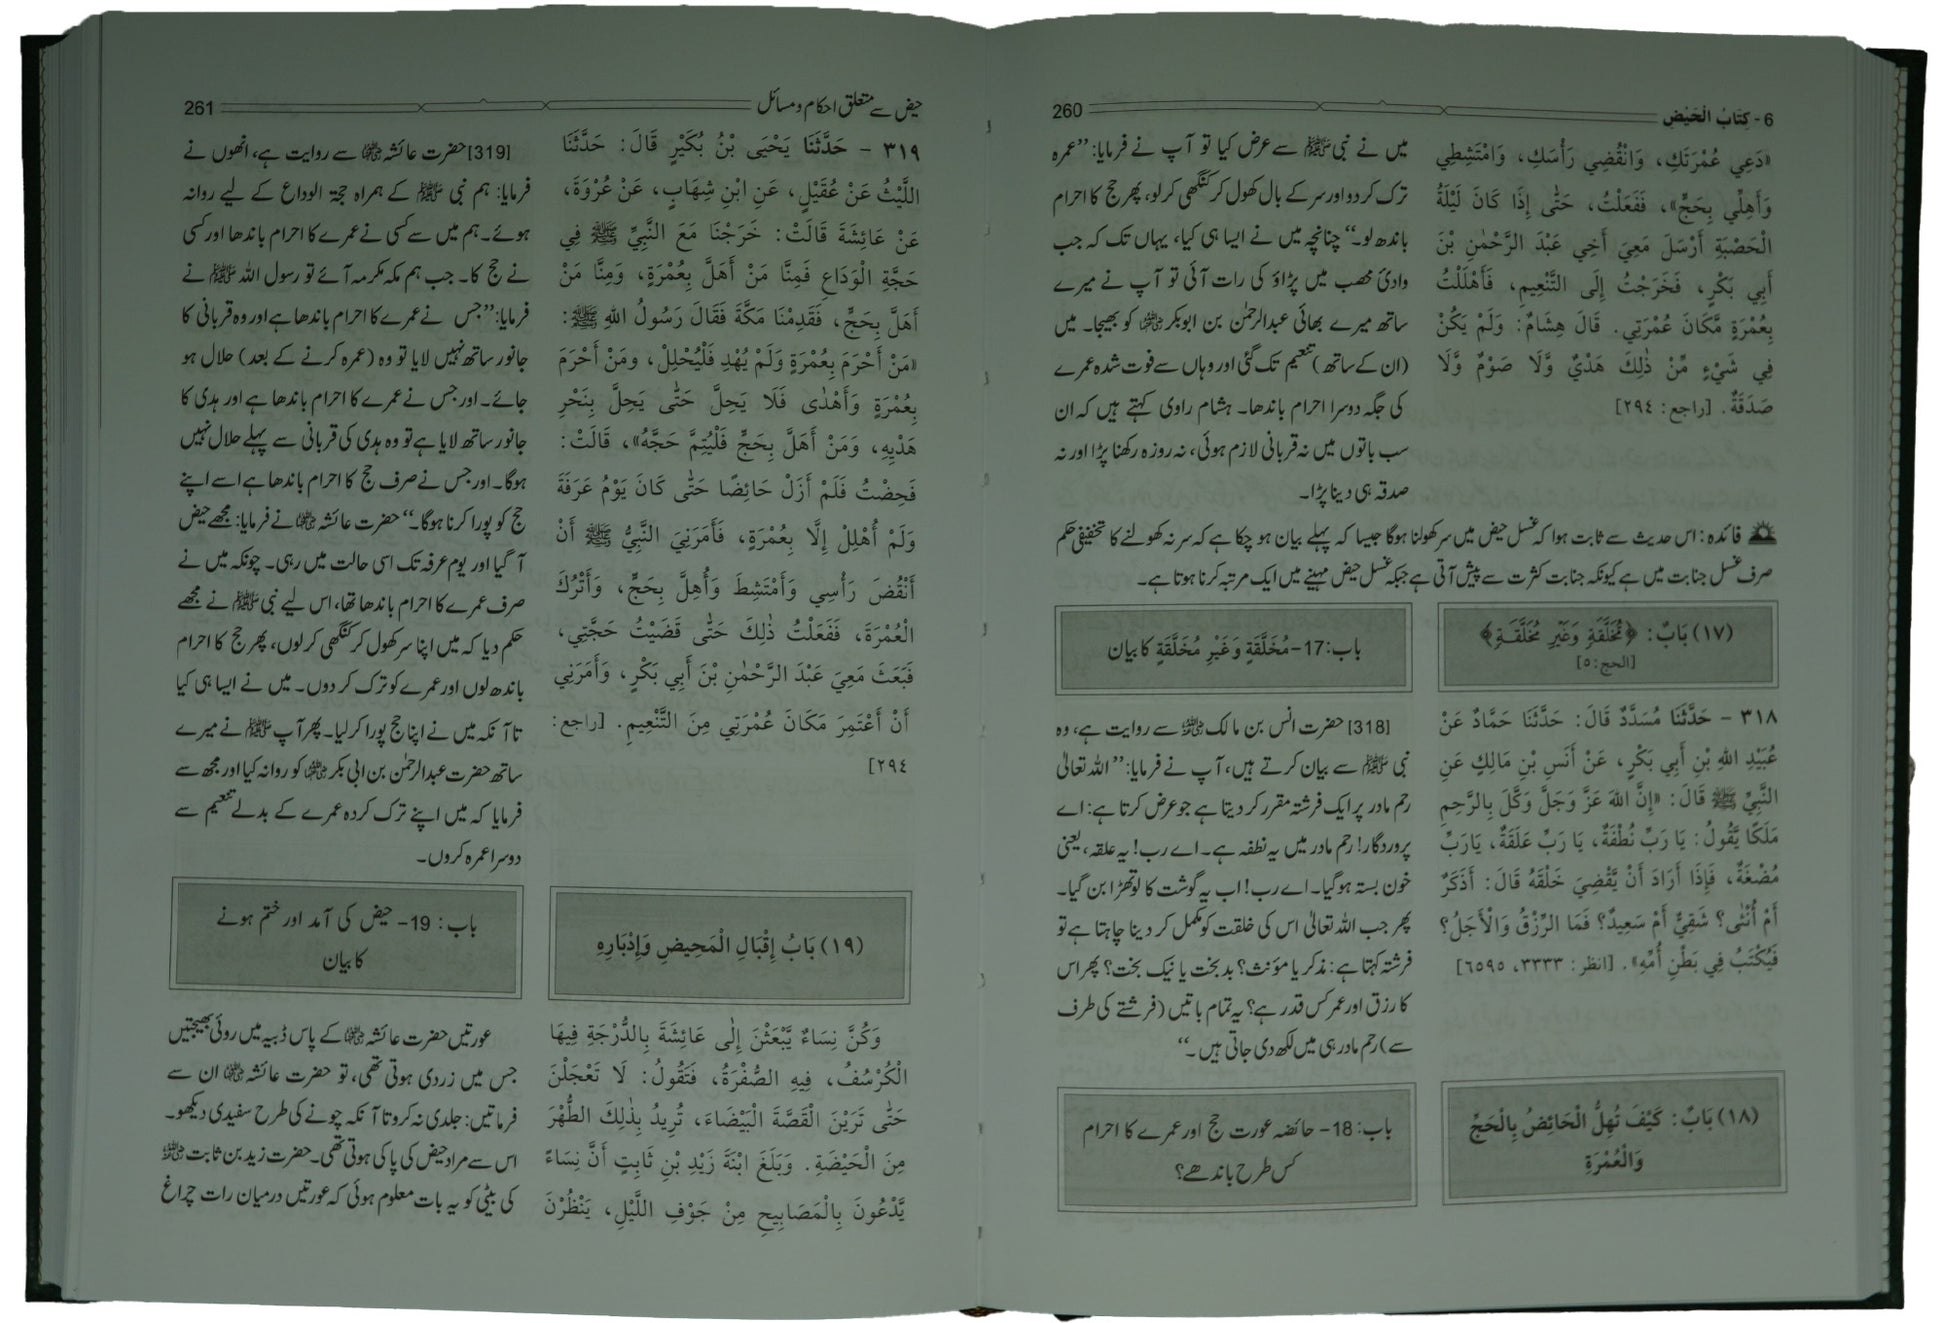 6 - كِتَابُ الْحَيْضِ
260
«دَعِي عُمْرَتَكِ، وَانْقُضِي رَأْسَكِ، وَامْتَشِطِي
وَأَهِلِّي بِحَجٍّ»، فَفَعَلْتُ، حَتّٰى إِذَا كَانَ لَيْلَةُ
الْحَصْبَةِ أَرْسَلَ مَعِيَ أَخِي عَبْدَ الرَّحْمٰنِ بْنَ
أَبِي بَكْرٍ، فَخَرَجْتُ إِلَى التَّنْعِيمِ، فَأَهْلَلْتُ
بِعُمْرَةٍ مَّكَانَ عُمْرَتِي. قَالَ هِشَامٌ: وَلَمْ يَكُنْ
فِي شَيْءٍ مِّنْ ذٰلِكَ هَدْيٌ وَّلَا صَوْمٌ وَّلَا
صَدَقَةٌ. [راجع: ٢٩٤]
میں نے نبی ﷺ سے عرض کیا تو آپ نے فرمایا: ’’عمرہ
ترک کر دو اور سر کے بال کھول کر کنگھی کر لو، پھر حج کا احرام
باندھ لو۔‘‘ چنانچہ میں نے ایسا ہی کیا، یہاں تک کہ جب
وادیٔ محصب میں پڑاؤ کی رات آئی تو آپ نے میرے
ساتھ میرے بھائی عبدالرحمٰن بن ابوبکر ؓ کو بھیجا۔ میں
(ان کے ساتھ) تنعیم تک گئی اور وہاں سے فوت شدہ عمرے
کی جگہ دوسرا احرام باندھا۔ ہشام راوی کہتے ہیں کہ ان
سب باتوں میں نہ قربانی لازم ہوئی، نہ روزہ رکھنا پڑا اور نہ
صدقہ ہی دینا پڑا۔
فائدہ: اس حدیث سے ثابت ہوا کہ غسل حیض میں سر کھولنا ہوگا جیسا کہ پہلے بیان ہو چکا ہے کہ سر نہ کھولنے کا تخفیفی حکم
صرف غسل جنابت میں ہے کیونکہ جنابت کثرت سے پیش آتی ہے جبکہ غسل حیض مہینے میں ایک مرتبہ کرنا ہوتا ہے۔
(١٧) بَابٌ: ﴿مُّخَلَّقَةٍ وَغَيْرِ مُخَلَّقَةٍ﴾
[الحج: ٥]
باب: 17- مُخَلَّقَةٍ وَغَيْرِ مُخَلَّقَةٍ کا بیان
٣١٨ - حَدَّثَنَا مُسَدَّدٌ قَالَ: حَدَّثَنَا حَمَّادٌ عَنْ
عُبَيْدِ اللهِ بْنِ أَبِي بَكْرٍ، عَنْ أَنَسِ بْنِ مَالِكٍ عَنِ
النَّبِيِّ ﷺ قَالَ: «إِنَّ اللهَ عَزَّ وَجَلَّ وَكَّلَ بِالرَّحِمِ
مَلَكًا يَّقُولُ: يَا رَبِّ نُطْفَةٌ، يَا رَبِّ عَلَقَةٌ، يَارَبِّ
مُضْغَةٌ، فَإِذَا أَرَادَ أَنْ يَّقْضِيَ خَلْقَهُ قَالَ: أَذَكَرٌ
أَمْ أُنْثٰى؟ شَقِيٌّ أَمْ سَعِيدٌ؟ فَمَا الرِّزْقُ وَالْأَجَلُ؟
فَيُكْتَبُ فِي بَطْنِ أُمِّهِ». [انظر: ٣٣٣٣، ٦٥٩٥]
[318] حضرت انس بن مالک ؓ سے روایت ہے، وہ
نبی ﷺ سے بیان کرتے ہیں، آپ نے فرمایا: ’’اللہ تعالیٰ
رحم مادر پر ایک فرشتہ مقرر کر دیتا ہے جو عرض کرتا ہے: اے
پروردگار! رحم مادر میں یہ نطفہ ہے۔ اے رب! یہ علقہ، یعنی
خون بستہ ہوگیا۔ اے رب! اب یہ گوشت کا لوتھڑا بن گیا۔
پھر جب اللہ تعالیٰ اس کی خلقت کو مکمل کر دینا چاہتا ہے تو
فرشتہ کہتا ہے: مذکر یا مؤنث؟ بدبخت یا نیک بخت؟ پھر اس
کا رزق اور عمر کس قدر ہے؟ یہ تمام باتیں (فرشتے کی طرف
سے) رحم مادر ہی میں لکھ دی جاتی ہیں۔‘‘
(١٨) بَابٌ: كَيْفَ تُهِلُّ الْحَائِضُ بِالْحَجِّ
وَالْعُمْرَةِ
باب: 18- حائضہ عورت حج اور عمرے کا احرام
کس طرح باندھے؟
حیض سے متعلق احکام و مسائل
261
٣١٩ - حَدَّثَنَا يَحْيَى بْنُ بُكَيْرٍ قَالَ: حَدَّثَنَا
اللَّيْثُ عَنْ عُقَيْلٍ، عَنِ ابْنِ شِهَابٍ، عَنْ عُرْوَةَ،
عَنْ عَائِشَةَ قَالَتْ: خَرَجْنَا مَعَ النَّبِيِّ ﷺ فِي
حَجَّةِ الْوَدَاعِ فَمِنَّا مَنْ أَهَلَّ بِعُمْرَةٍ، وَمِنَّا مَنْ
أَهَلَّ بِحَجٍّ، فَقَدِمْنَا مَكَّةَ فَقَالَ رَسُولُ اللهِ ﷺ:
«مَنْ أَحْرَمَ بِعُمْرَةٍ وَلَمْ يُهْدِ فَلْيُحْلِلْ، ومَنْ أَحْرَمَ
بِعُمْرَةٍ وَأَهْدٰى فَلَا يَحِلُّ حَتّٰى يَحِلَّ بِنَحْرِ
هَدْيِهِ، وَمَنْ أَهَلَّ بِحَجٍّ فَلْيُتِمَّ حَجَّهُ»، قَالَتْ:
فَحِضْتُ فَلَمْ أَزَلْ حَائِضًا حَتّٰى كَانَ يَوْمُ عَرَفَةَ
وَلَمْ أُهْلِلْ إِلَّا بِعُمْرَةٍ، فَأَمَرَنِيَ النَّبِيُّ ﷺ أَنْ
أَنْقُضَ رَأْسِي وَأَمْتَشِطَ وَأُهِلَّ بِحَجٍّ، وَأَتْرُكَ
الْعُمْرَةَ، فَفَعَلْتُ ذٰلِكَ حَتّٰى قَضَيْتُ حَجَّتِي،
فَبَعَثَ مَعِيَ عَبْدَ الرَّحْمٰنِ بْنَ أَبِي بَكْرٍ، وَأَمَرَنِي
أَنْ أَعْتَمِرَ مَكَانَ عُمْرَتِي مِنَ التَّنْعِيمِ. [راجع:
٢٩٤]
[319] حضرت عائشہ ؓ سے روایت ہے، انھوں نے
فرمایا: ہم نبی ﷺ کے ہمراہ حجۃ الوداع کے لیے روانہ
ہوئے۔ ہم میں سے کسی نے عمرے کا احرام باندھا اور کسی
نے حج کا۔ جب ہم مکہ مکرمہ آئے تو رسول اللہ ﷺ نے
فرمایا: ’’جس نے عمرے کا احرام باندھا ہے اور وہ قربانی کا
جانور ساتھ نہیں لایا تو وہ (عمرہ کرنے کے بعد) حلال ہو
جائے۔ اور جس نے عمرے کا احرام باندھا ہے اور ہدی کا
جانور ساتھ لایا ہے تو وہ ہدی کی قربانی سے پہلے حلال نہیں
ہوگا۔ اور جس نے صرف حج کا احرام باندھا ہے اسے اپنے
حج کو پورا کرنا ہوگا۔‘‘ حضرت عائشہ ؓ نے فرمایا: مجھے حیض
آ گیا اور یوم عرفہ تک اسی حالت میں رہی۔ چونکہ میں نے
صرف عمرے کا احرام باندھا تھا، اس لیے نبی ﷺ نے مجھے
حکم دیا کہ میں اپنا سر کھول کر کنگھی کر لوں، پھر حج کا احرام
باندھ لوں اور عمرے کو ترک کر دوں۔ میں نے ایسا ہی کیا
تا آنکہ میں نے اپنا حج پورا کر لیا۔ پھر آپ ﷺ نے میرے
ساتھ حضرت عبدالرحمٰن بن ابی بکر ؓ کو روانہ کیا اور مجھ سے
فرمایا کہ میں اپنے ترک کردہ عمرے کے بدلے تنعیم سے
دوسرا عمرہ کروں۔
(١٩) بَابُ إِقْبَالِ الْمَحِيضِ وَإِدْبَارِهِ
باب: 19- حیض کی آمد اور ختم ہونے
کا بیان
وَكُنَّ نِسَاءٌ يَّبْعَثْنَ إِلٰى عَائِشَةَ بِالدُّرْجَةِ فِيهَا
الْكُرْسُفُ، فِيهِ الصُّفْرَةُ، فَتَقُولُ: لَا تَعْجَلْنَ
حَتّٰى تَرَيْنَ الْقَصَّةَ الْبَيْضَاءَ، تُرِيدُ بِذٰلِكَ الطُّهْرَ
مِنَ الْحَيْضَةِ. وَبَلَغَ ابْنَةَ زَيْدِ بْنِ ثَابِتٍ أَنَّ نِسَاءً
يَّدْعُونَ بِالْمَصَابِيحِ مِنْ جَوْفِ اللَّيْلِ، يَنْظُرْنَ
عورتیں حضرت عائشہ ؓ کے پاس ڈبیہ میں روئی بھیجتیں
جس میں زردی ہوتی تھی، تو حضرت عائشہ ؓ ان سے
فرماتیں: جلدی نہ کرو تا آنکہ چونے کی طرح سفیدی دیکھو۔
اس سے مراد حیض کی پاکی ہوتی تھی۔ حضرت زید بن ثابت ؓ
کی بیٹی کو یہ بات معلوم ہوئی کہ عورتیں درمیان رات چراغ